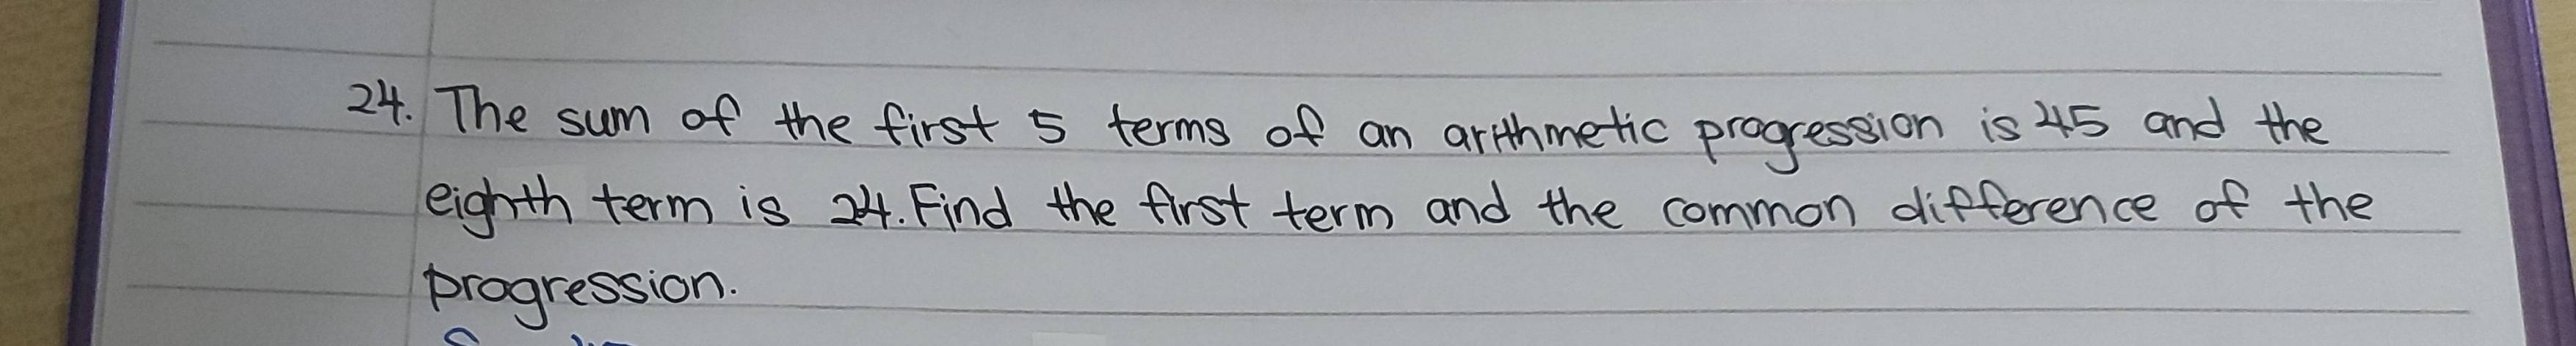 24. The sum of the first 5 terms of an arithmetic progression is 45 and the
eighth term is 24. Find the first term and the common difference of the
progression.